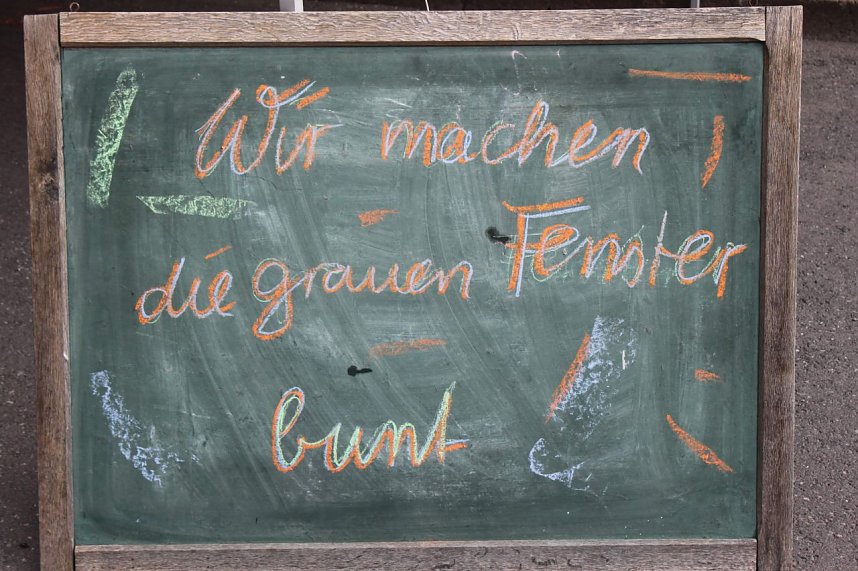 Wir machen
die grauen Fenster
bunt